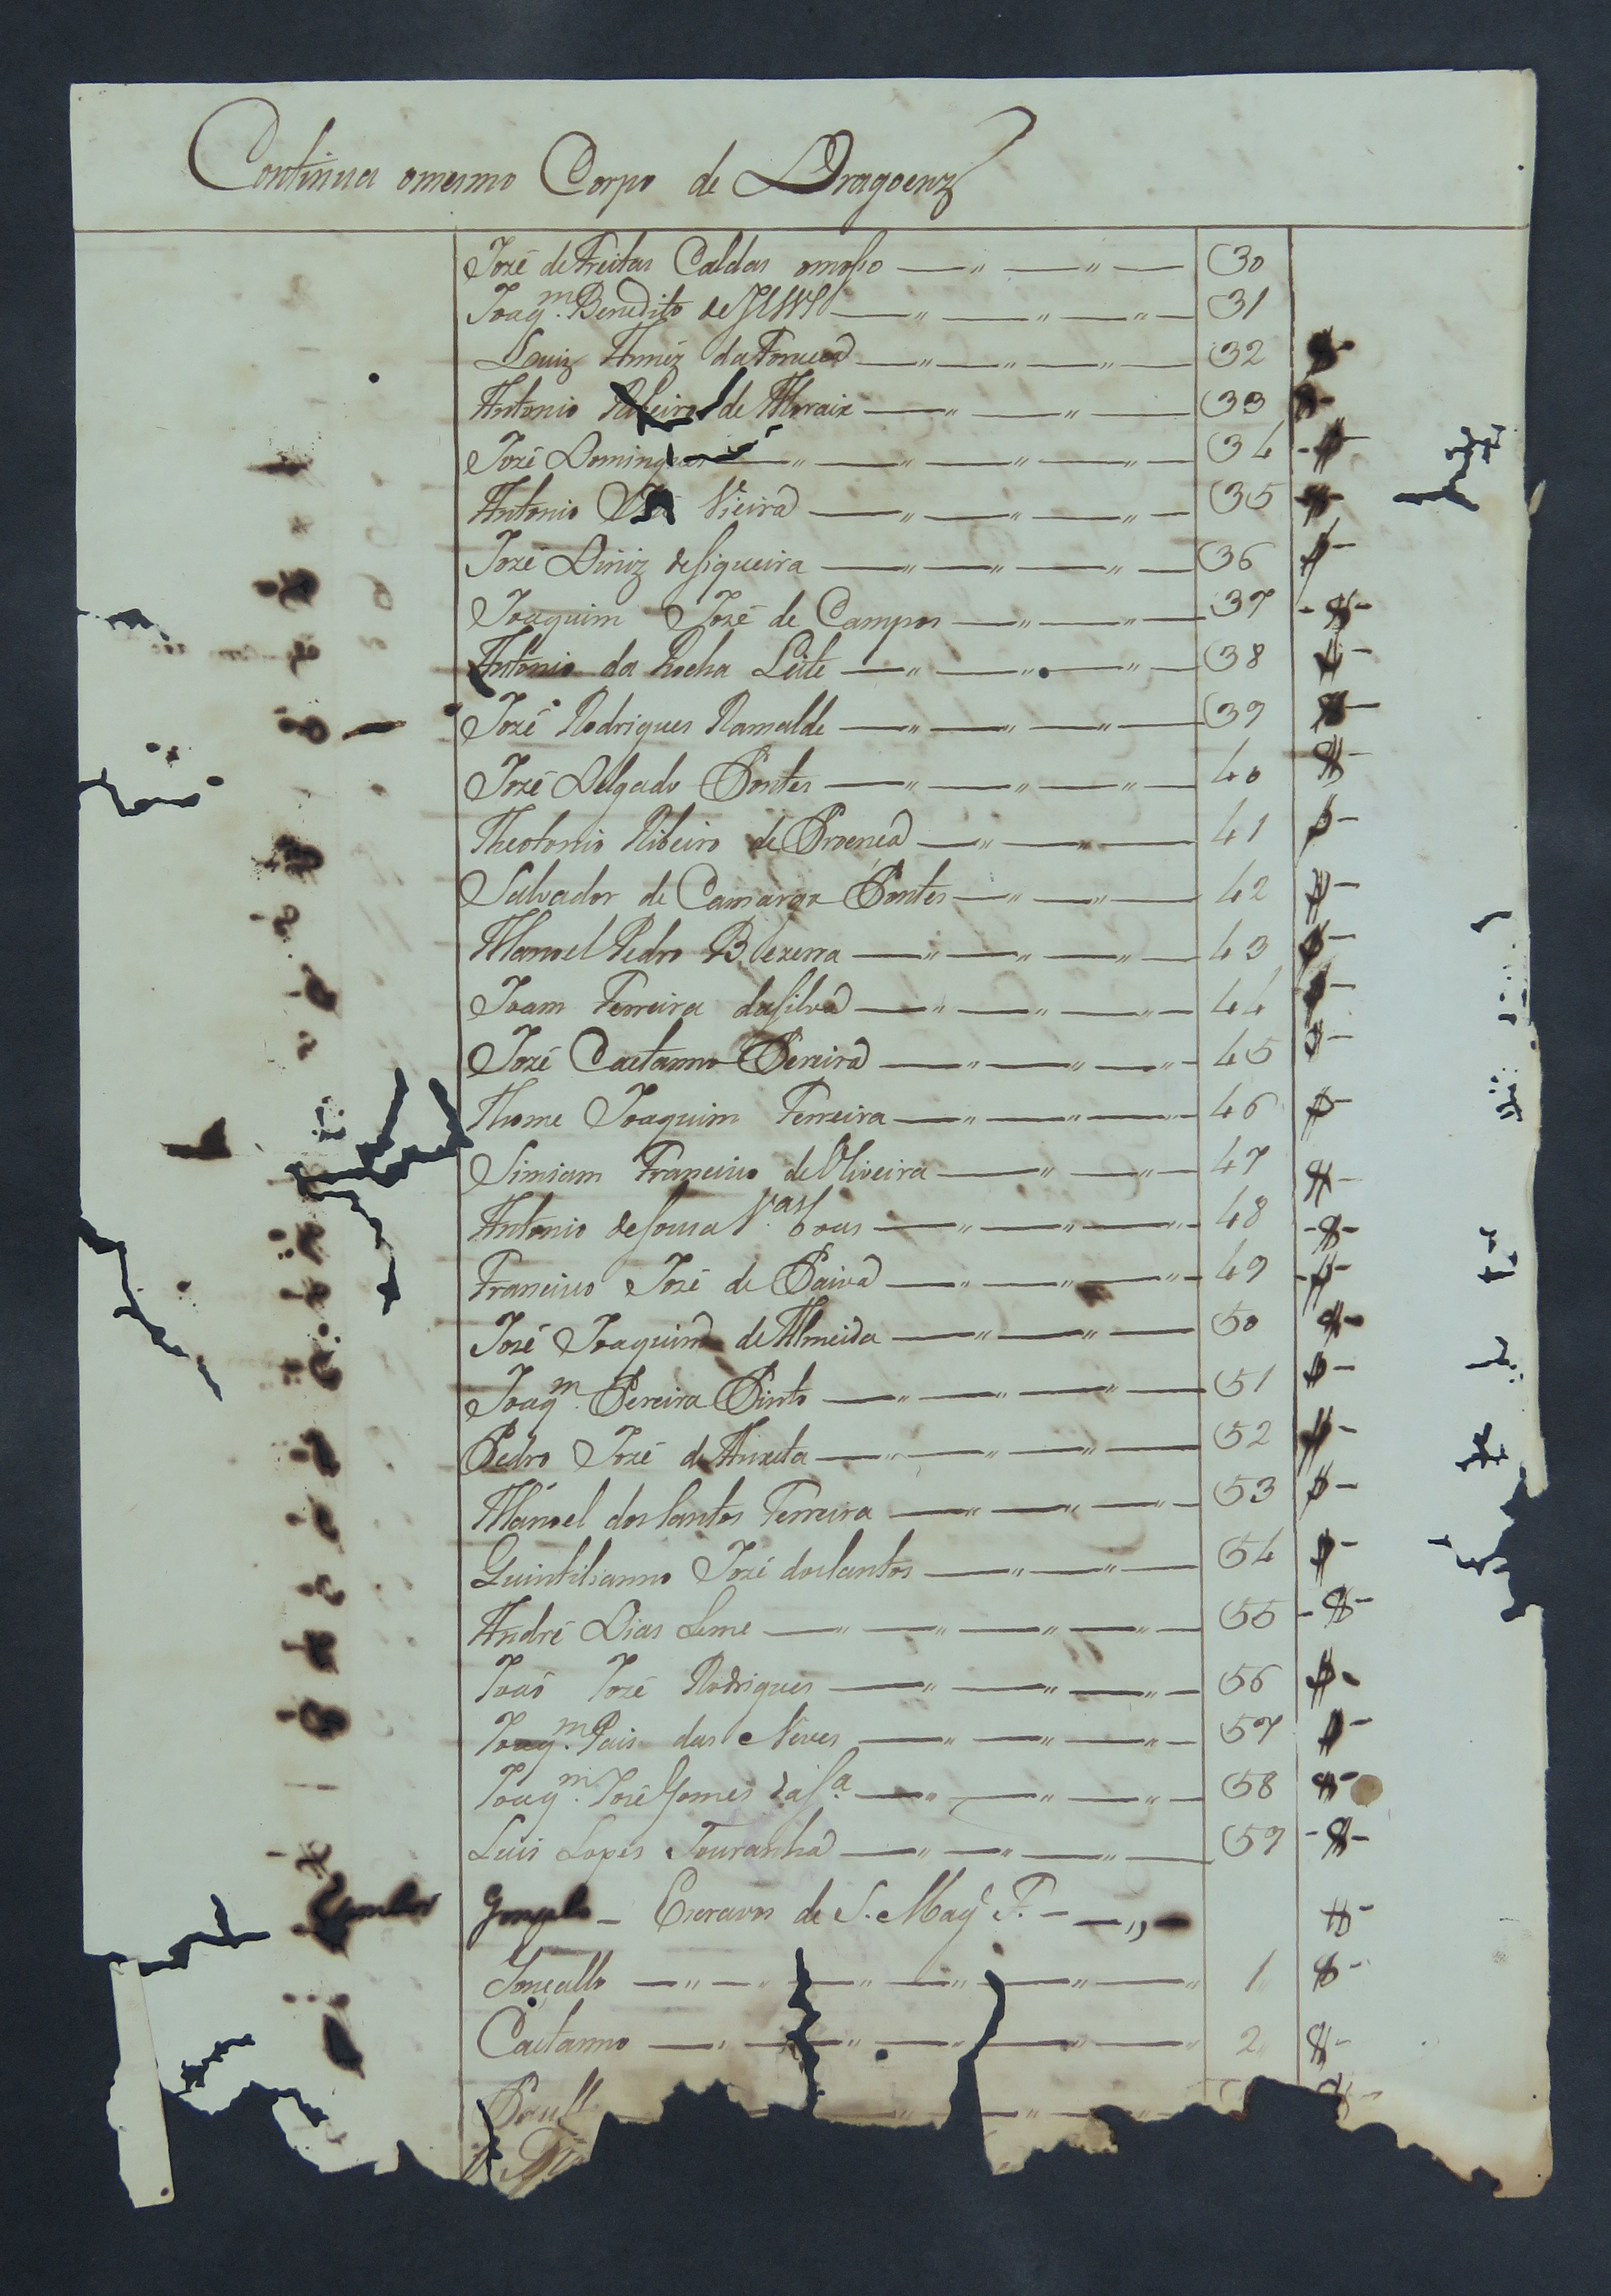 Continua omesmo Corpo de Dragoenz
José de Freitas Caldas omoſso 30
Joaqm. Benedito de JESUS 31
Luiz Antuñez da Fonceca 32 $
Antonio Ribeiro de Moraiz 33 $
José Domingues 34 $
Antonio José Vieira 35 $
José Diniz deSiqueira 36 $
Joaquim José de Campos 37 $
Antonio da Rocha Leite 38 $
José Rodrigues Ramalde 39 $
José Delgado Pontes 40 $
Theotonio Ribeiro de Proença 41 $
Salvador de Camargo Pontes 42 $
Manoel Pedro Bezerra 43 $
Joam Ferreira daSilva 44 $
José Caetanno Pereira 45 $
Thome Joaquim Ferreira 46 $
Simiam Francisco deOliveira 47 $
Antonio deSousa Vasconcellos 48 $
Francisco José de Paiva 49 $
José Joaquim de Almeida 50 $
Joaqm. Pereira Pinto 51 $
Pedro José de Anxeta 52 $
Manoel dosSantos Ferreira 53 $
Quintilianno José dosSantos 54 $
André Dias Leme 55 $
Joaõ José Rodrigues 56 $
Joaqm. Pais das Neves 57 $
Joaqm. José Gomes daSa 58 $
Luis Lopes Touranha 59 $
Escravos de S. Mage. F. $
Gonçallo 1 $
Caetanno 2 $
Paull